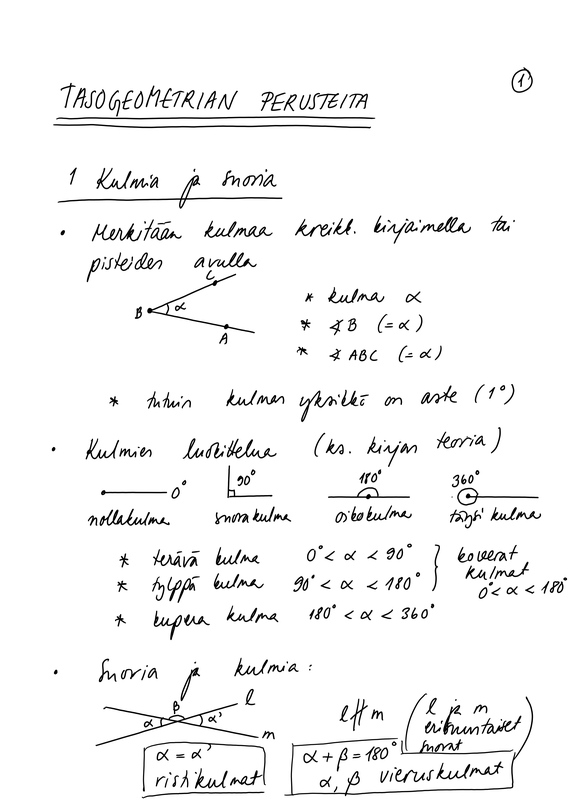 1
TASOGEOMETRIAN PERUSTEITA
1 Kulmia ja suoria
• Merkitään kulmaa kreikk. kirjaimella tai
pisteiden avulla
C
B α
A
* kulma α
* ∢B (=α)
* ∢ABC (=α)
* tutuin kulman yksikkö on aste (1°)
• Kulmien luokittelua (ks. kirjan teoria)
0° 90° 180° 360°
nollakulma suora kulma oikokulma täysi kulma
* terävä kulma 0° < α < 90°
* tylppä kulma 90° < α < 180°
koverat
kulmat
0° < α < 180°
* kupera kulma 180° < α < 360°
• Suoria ja kulmia:
β l
α α'
m
l ∦ m (l ja m
erisuuntaiset
suorat)
α = α'
ristikulmat
α + β = 180°
α, β vieruskulmat